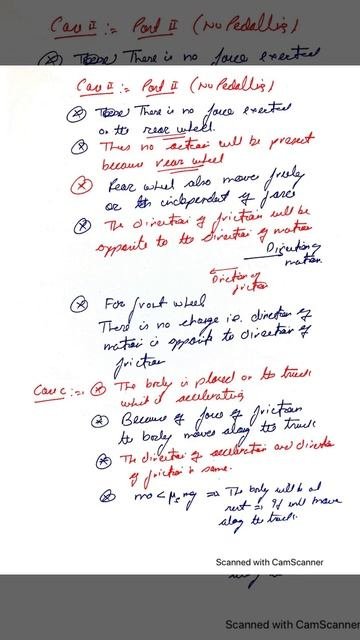 Case II :- Part II (No Pedalling)
⊛ These There is no force exerted
Case II :- Part II (No Pedalling)
⊛ These There is no force exerted
on the rear wheel.
⊛ Thus no action will be present
because rear wheel
⊛ Rear wheel also move freely
or is independent of force
⊛ The direction of friction will be
opposite to the direction of motion
Direction of
motion
Direction of
friction
⊛ For front wheel
There is no change i.e. direction of
motion is opposite to direction of
friction
Case C :- ⊛ The body is placed on the truck
which is accelerating
⊛ Because of force of friction
the body moves along the truck
⊛ The direction of acceleration and direction
of friction is same.
⊛ ma < μs mg ⇒ The body will be at
rest ⇒ It will move
along the truck.
Scanned with CamScanner
Scanned with CamScanner